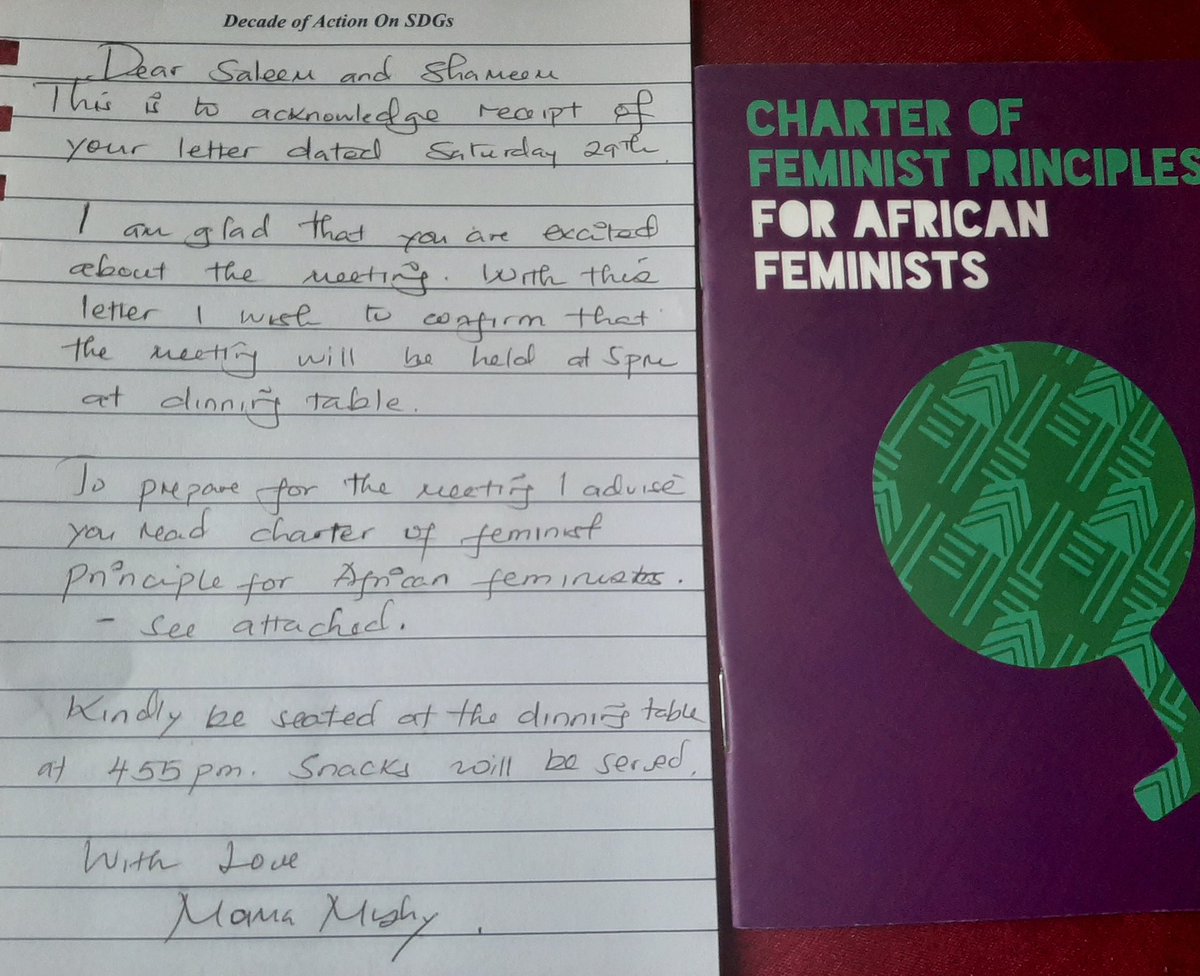 Decade of Action On SDGs
Dear Saleem and Shameem
This is to acknowledge receipt of
your letter dated Saturday 29th.
I am glad that you are excited
about the meeting. With this
letter I wish to confirm that
the meeting will be held at 5pm
at dinning table.
To prepare for the meeting I advise
you read charter of feminist
principle for African feminists.
- see attached.
Kindly be seated at the dinning table
at 455pm. Snacks will be served.
With Love
Mama Mishy.
CHARTER OF
FEMINIST PRINCIPLES
FOR AFRICAN
FEMINISTS